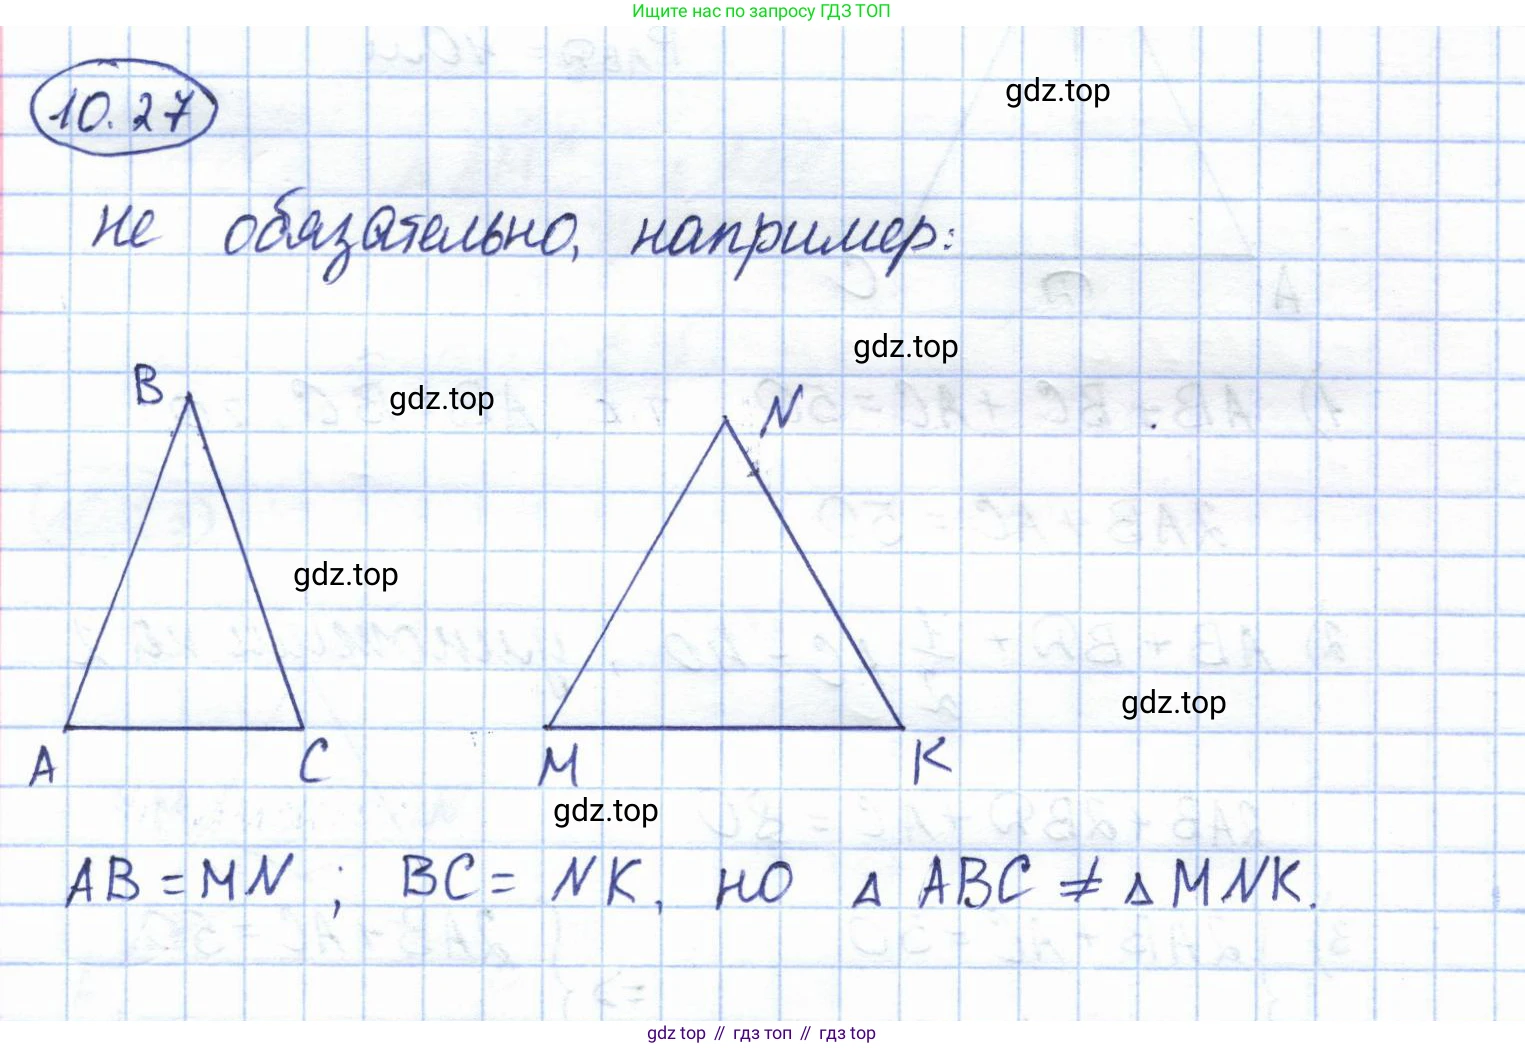 Ищите нас по запросу ГДЗ ТОП
10.27
gdz.top
не обязательно, например:
gdz.top
B
gdz.top
N
gdz.top
gdz.top
A
C
M
K
gdz.top
AB = MN ; BC = NK, но Δ ABC ≠ Δ MNK.
gdz top // гдз топ // гдз top